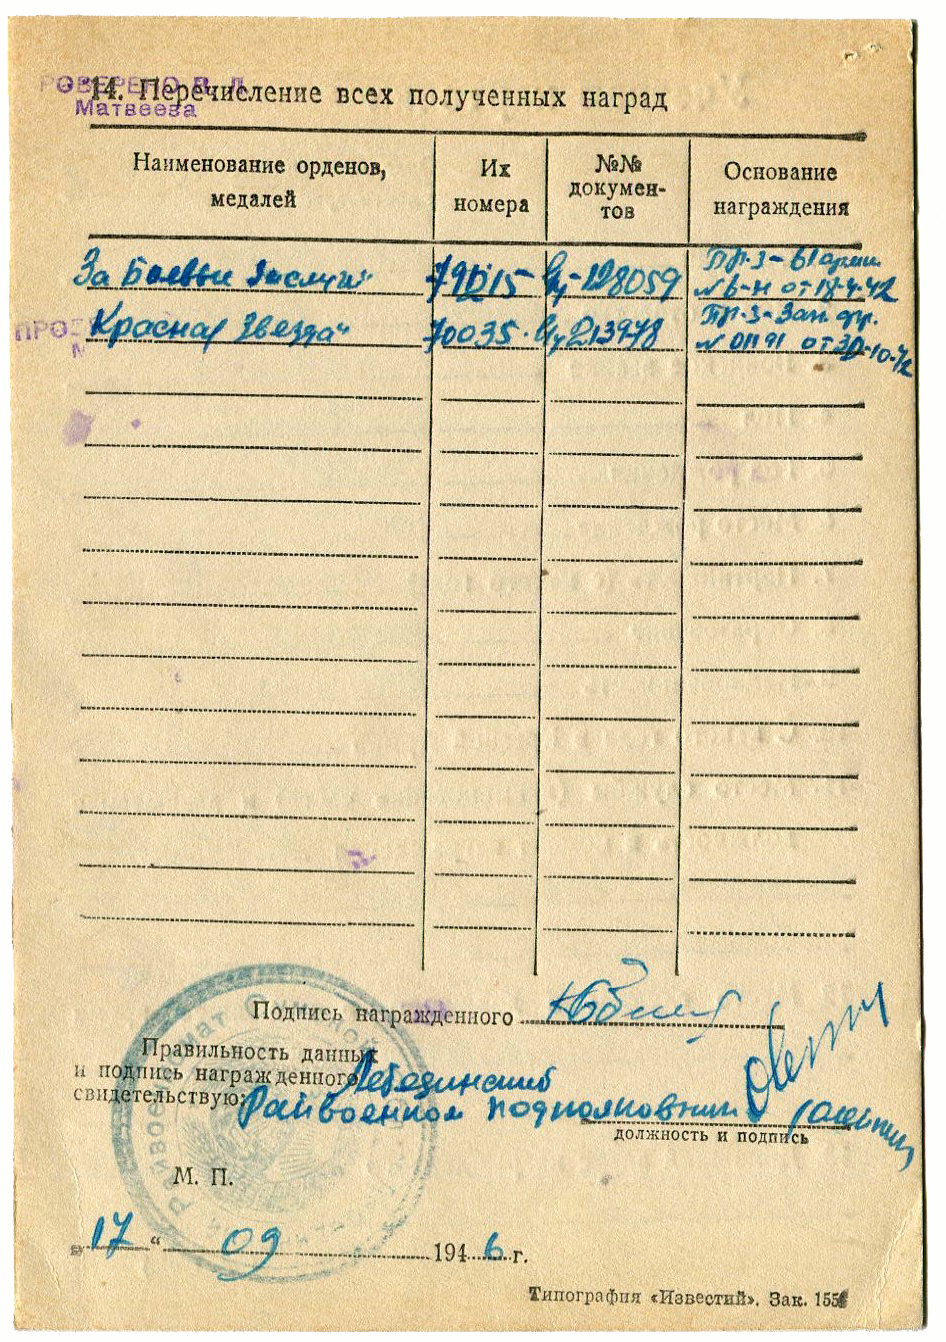 РОВЕРЕНО В. Д.
Матвеева
14. Перечисление всех полученных наград
Наименование орденов, медалей
Их номера
№№ докумен-тов
Основание награждения
За Боевые Заслуги" 79215 128059 Пр-з- 61 арми. №6-н от 18-4-42
Красная Звезда" 70035 213978 Пр-з- Зап. фр. № 01191 от 30-10-42
Подпись награжденного
Правильность данных
и подпись награжденного
свидетельствую: Лебединский
Райвоенком подполковник
должность и подпись
М. П.
„17“ 09 1946 г.
Типография «Известий». Зак. 155